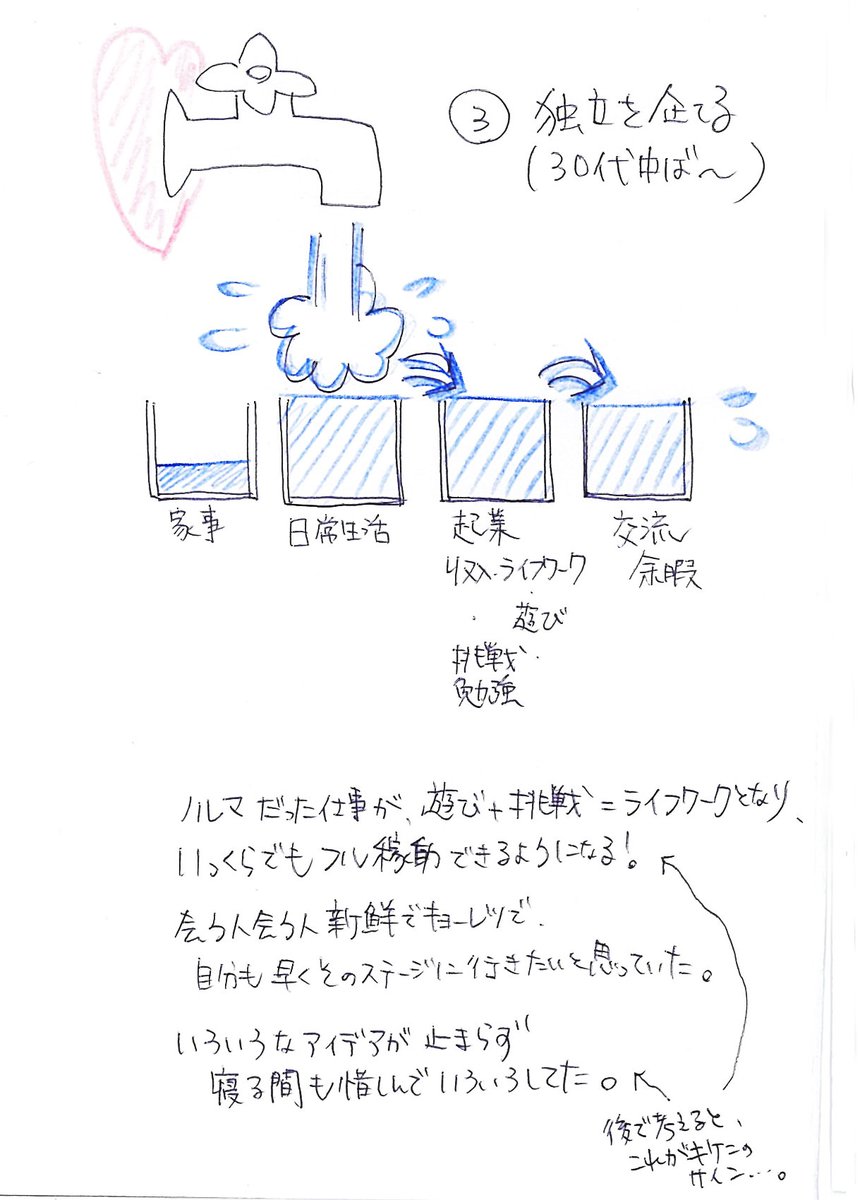 ③ 独立を企てる
(30代中ば〜)
家事
日常生活
起業
収入・ライフワーク
・遊び
挑戦・
勉強
交流
余暇
ノルマだった仕事が、遊び+挑戦=ライフワークとなり、
いっくらでもフル稼動できるようになる!
会う人会う人新鮮でキョーレツで、
自分も早くそのステージに行きたいと思っていた。
いろいろなアイデアが止まらず
寝る間も惜しんでいろいろしてた。
後で考えると、
これがキケンの
サイン…。